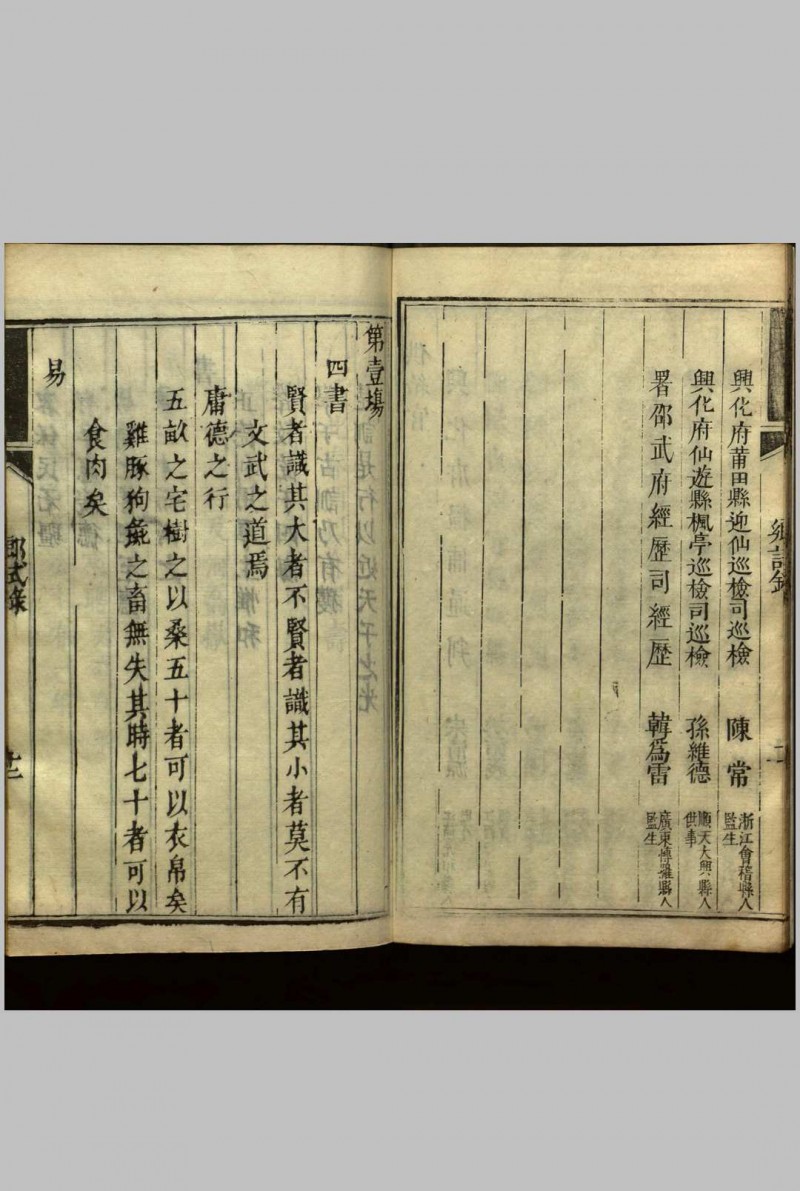 興化府莆田縣迎仙巡檢司巡檢 陳常 浙江會稽縣人監生
興化府仙遊縣楓亭巡檢司巡檢 孫維德 順天大興縣人供事
署邵武府經歷司經歷 韓為雷 廣東博羅縣人監生
第壹場
四書
賢者識其大者不賢者識其小者莫不有
文武之道焉
庸德之行
五畝之宅樹之以桑五十者可以衣帛矣
雞豚狗彘之畜無失其時七十者可以
食肉矣
易